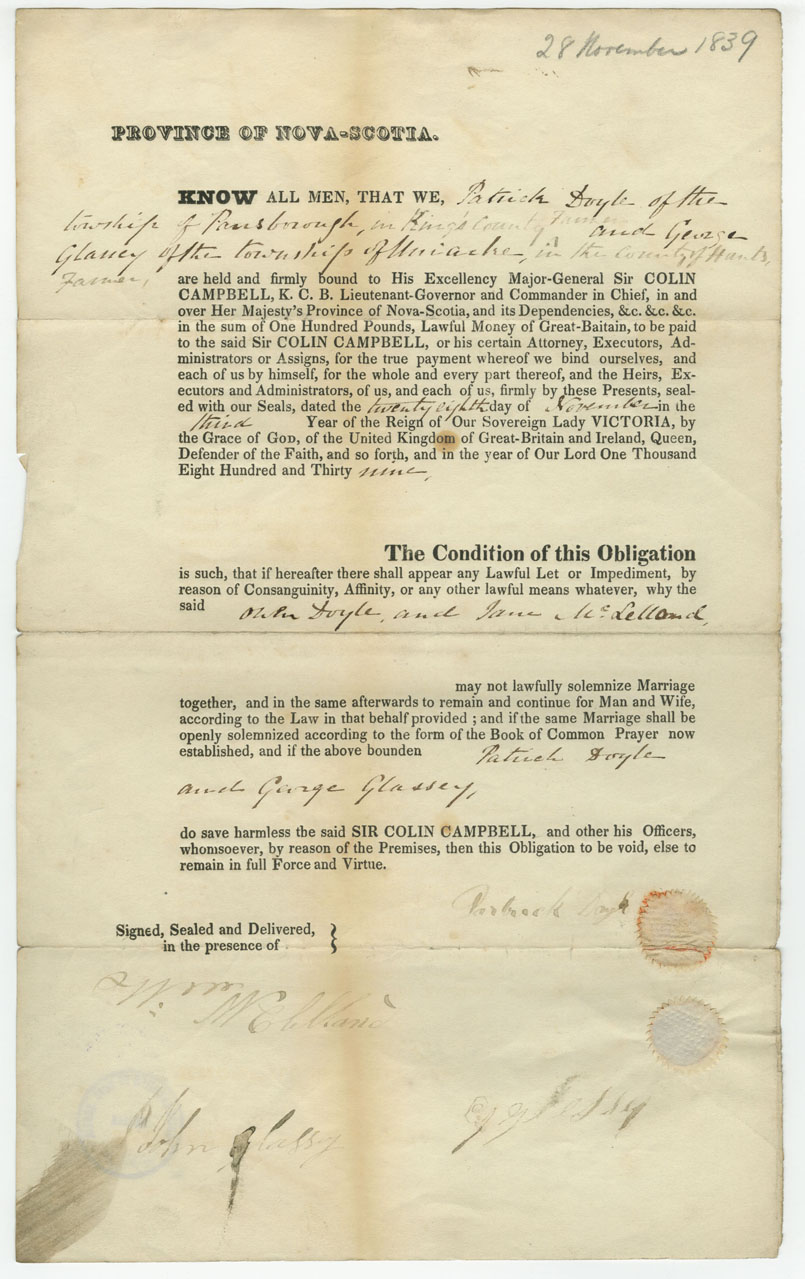 28 November 1839
PROVINCE OF NOVA-SCOTIA.
KNOW ALL MEN, THAT WE, Patrick Doyle of the
township of Parrsborough, in King's County Farmer and George
Glassey of the township of Uniacke, in the County of Hants,
Farmer,
are held and firmly bound to His Excellency Major-General Sir COLIN
CAMPBELL, K. C. B. Lieutenant-Governor and Commander in Chief, in and
over Her Majesty's Province of Nova-Scotia, and its Dependencies, &c. &c. &c.
in the sum of One Hundred Pounds, Lawful Money of Great-Baitain, to be paid
to the said Sir COLIN CAMPBELL, or his certain Attorney, Executors, Ad-
ministrators or Assigns, for the true payment whereof we bind ourselves, and
each of us by himself, for the whole and every part thereof, and the Heirs, Ex-
ecutors and Administrators, of us, and each of us, firmly by these Presents, seal-
ed with our Seals, dated the twenty eighth day of November in the
third Year of the Reign of Our Sovereign Lady VICTORIA, by
the Grace of GOD, of the United Kingdom of Great-Britain and Ireland, Queen,
Defender of the Faith, and so forth, and in the year of Our Lord One Thousand
Eight Hundred and Thirty nine,
The Condition of this Obligation
is such, that if hereafter there shall appear any Lawful Let or Impediment, by
reason of Consanguinity, Affinity, or any other lawful means whatever, why the
said
Doyle, and Jane McLelland,
may not lawfully solemnize Marriage
together, and in the same afterwards to remain and continue for Man and Wife,
according to the Law in that behalf provided ; and if the same Marriage shall be
openly solemnized according to the form of the Book of Common Prayer now
established, and if the above bounden Patrick Doyle
and George Glassey,
do save harmless the said SIR COLIN CAMPBELL, and other his Officers,
whomsoever, by reason of the Premises, then this Obligation to be void, else to
remain in full Force and Virtue.
Signed, Sealed and Delivered,
in the presence of
Wm
John Glassy